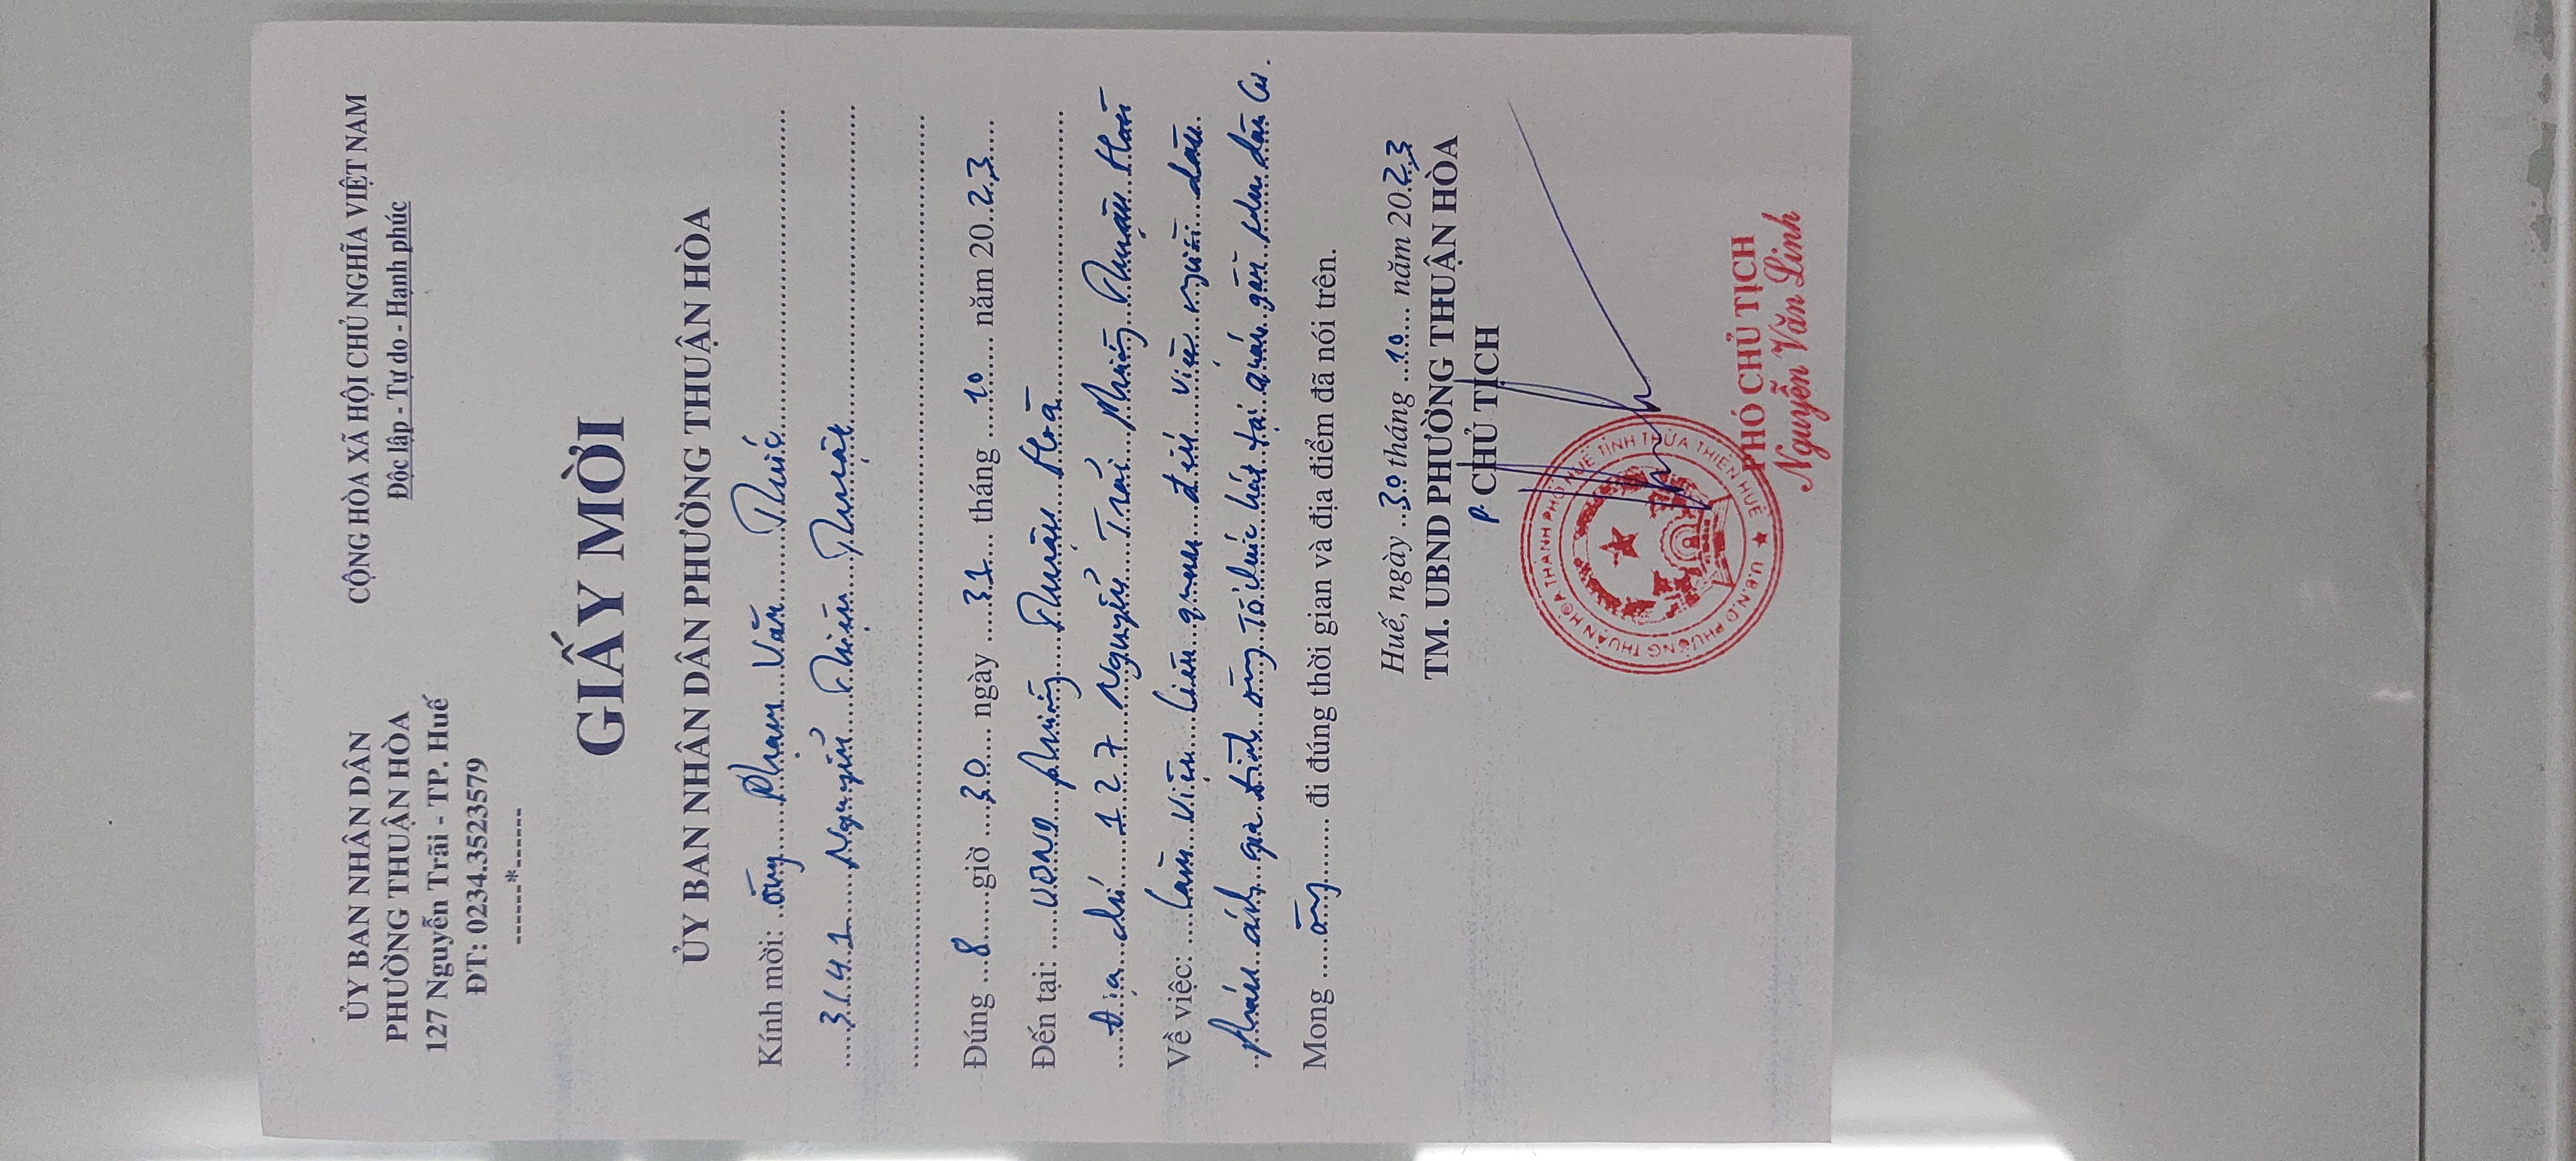 ỦY BAN NHÂN DÂN
PHƯỜNG THUẬN HÒA
127 Nguyễn Trãi - TP. Huế
ĐT: 0234.3523579
------*------
CỘNG HÒA XÃ HỘI CHỦ NGHĨA VIỆT NAM
Độc lập - Tự do - Hạnh phúc
GIẤY MỜI
ỦY BAN NHÂN DÂN PHƯỜNG THUẬN HÒA
Kính mời: ông Phạm Văn Thức
3/41 Nguyễn Thiện Thuật
Đúng 8 giờ 30 ngày 31 tháng 10 năm 2023
Đến tại: UBND phường Thuận Hoà
Địa chỉ 127 Nguyễn Trãi Phường Thuận Hoà
Về việc: Làm việc liên quan đến việc người dân
phản ánh gia đình ông Tổ chức hát tại quán gần khu dân cư.
Mong ông đi đúng thời gian và địa điểm đã nói trên.
Huế, ngày 30 tháng 10 năm 2023
TM. UBND PHƯỜNG THUẬN HÒA
P CHỦ TỊCH
U.B.N.D PHƯỜNG THUẬN HÒA THÀNH PHỐ HUẾ TỈNH THỪA THIÊN HUẾ
PHÓ CHỦ TỊCH
Nguyễn Văn Linh